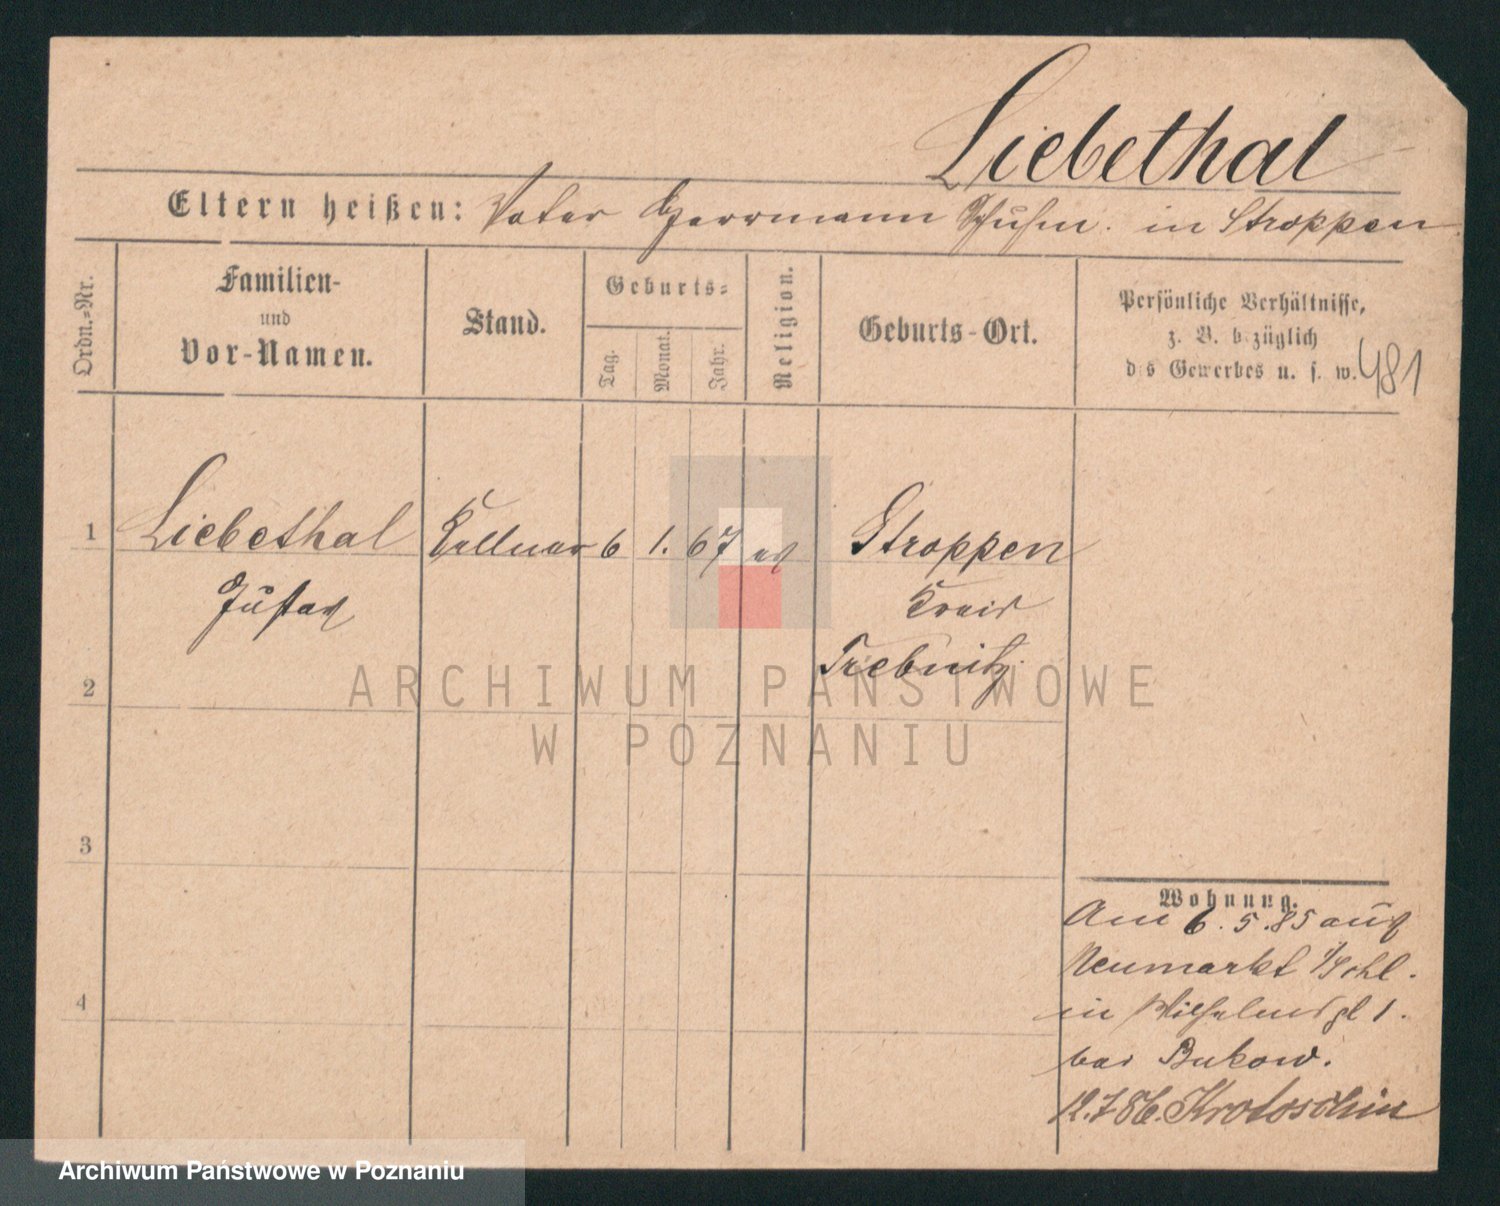 Liebethal
Eltern heißen: Vater Herrmann Schuhm. in Stroppen
Ordn.-Nr.
Familien-
und
Vor-Namen.
Stand.
Geburts-
Tag.
Monat.
Jahr.
Religion.
Geburts-Ort.
Persönliche Verhältnisse,
z. B. bezüglich
des Gewerbes u. s. w.
481
1 Liebethal Kellner 6 1. 67 ev Stroppen
Gustav Kreis
Trebnitz.
2
3
4
Wohnung.
Am 6.5.85 aus
Neumarkt i/Schl.
in Wilhelmspl 1.
bei Bukow.
12.7.86. Krotoschin
ARCHIWUM PAŃSTWOWE
W POZNANIU
Archiwum Państwowe w Poznaniu